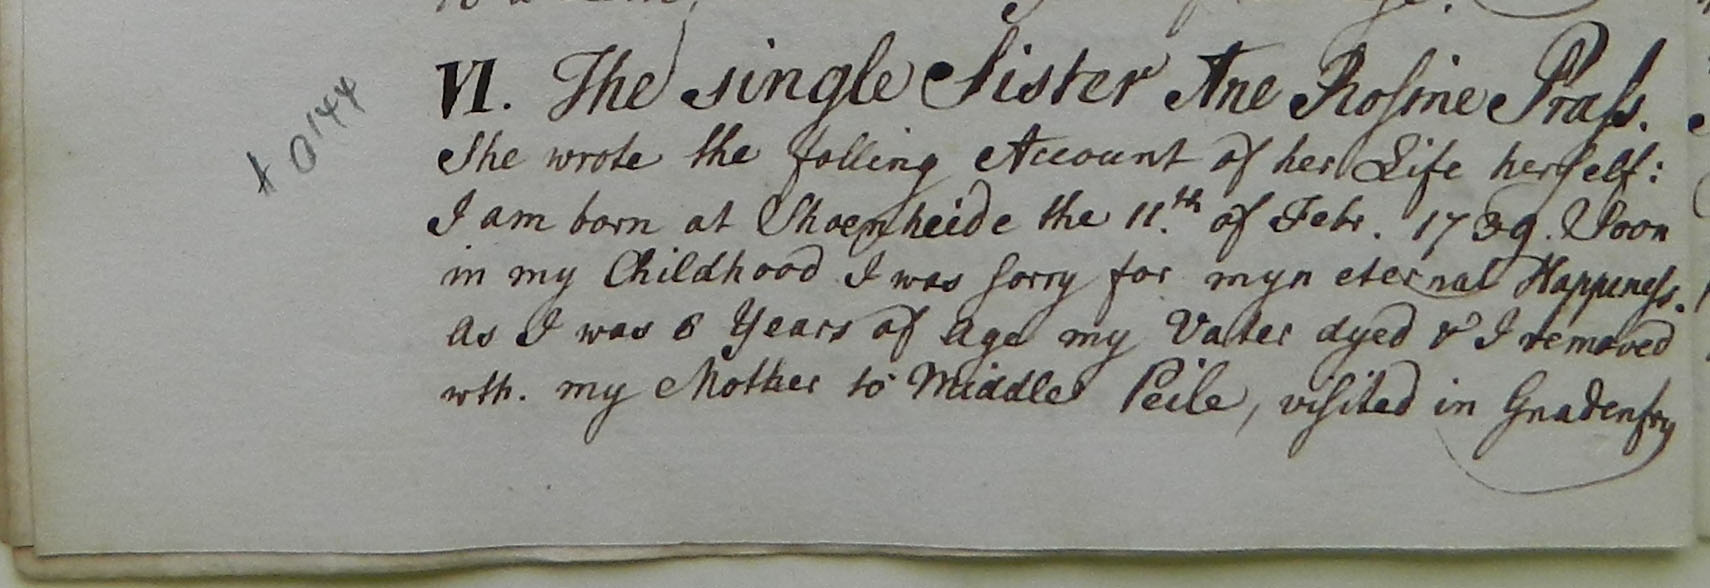 A 0144
VI. The single Sister Ane Rosine Prass.
She wrote the folling Account of her Life herself:
I am born at Shoenheide the 11.th of Febr. 1739. Soon
in my Childhood I was sorry for myn eternal Happiness.
As I was 8 Years of Age my Vater dyed & I removed
wth. my Mother to Middle Peile, visited in Gnadenfry